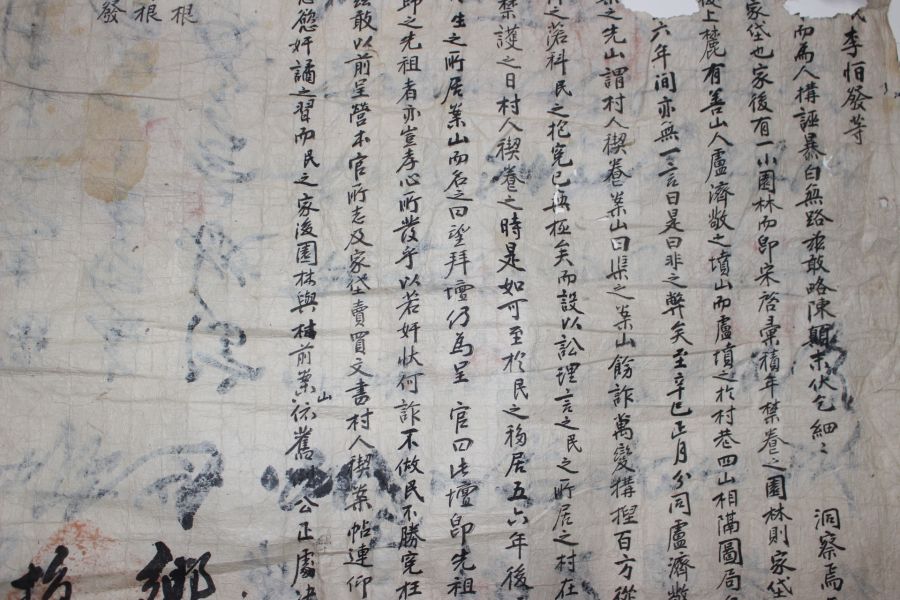 李恒發等
而爲人構誣暴白無路玆敢略陳顚末伏乞細〻 洞察焉
家垈也家後有一小園林而卽宋啓彙積年禁養之園林則家垈
後上麓有善山人盧濟敞之墳山而盧墳之於村巷四山相隔圖局
六年間亦無一言曰是曰非之弊矣至辛巳正月分同盧濟敞
之先山謂村人禊養案山曰渠之案山餙詐萬變構捏百方從
之落科民之抱寃已無極矣而設以訟理言之民之所居之村在
禁護之日村人禊養之時是如可至於民之移居五六年後
生之所居案山而名之曰望拜壇仍爲呈 官曰此壇卽先祖
卽之先祖者亦豈孝心所發乎以若奸怢何詐不做民不勝寃枉
玆敢以前呈營本官所志及家垈賣買文書村人禊案帖連仰
慾奸譎之習而民之家後園林與村前案山依舊 公正處決
根
根
發
鄕